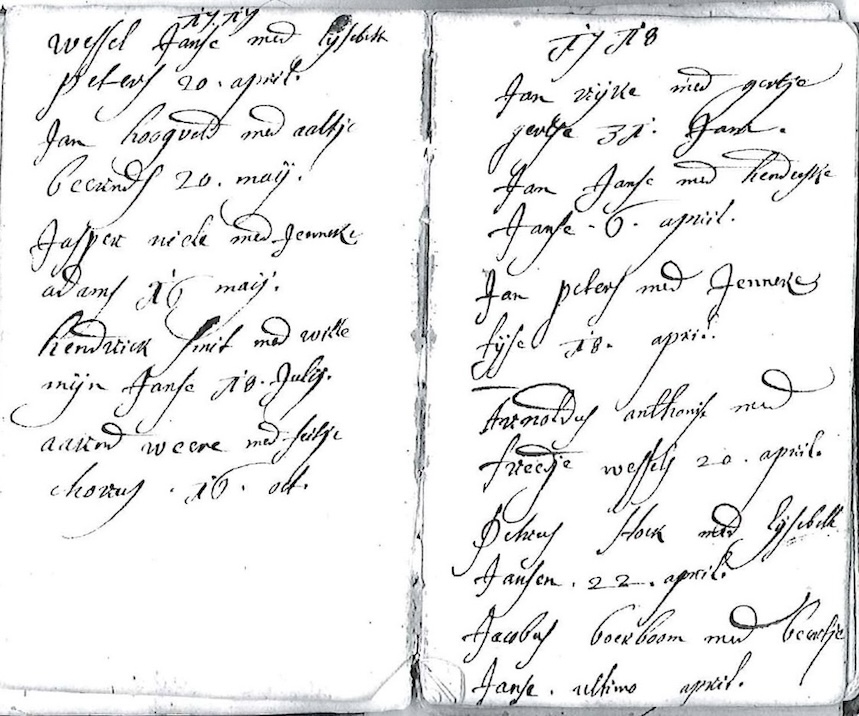 1717
wessel Janse med lijsebeth
peters 20. april.
Jan hoogveld med aaltje
beerends 20. maij.
Jasper niele med Jenneke
adams 16 maij.
hendrick smit med wille
mijn Janse 18. Julij.
aarend weere med
chorus. 16. oct.
1718
Jan rijke med geertje
geertje 31. Janu.
Jan Janse med hendrijske
Janse. 6. april.
Jan peters med Jenneke
tijse 18. april.
Arnoldus anthonis med
freedje wessels 20. april.
Petrus stock med lijsebeth
Jansen. 22. april.
Jacobus boekboom med beertje
Janse. ultimo april.